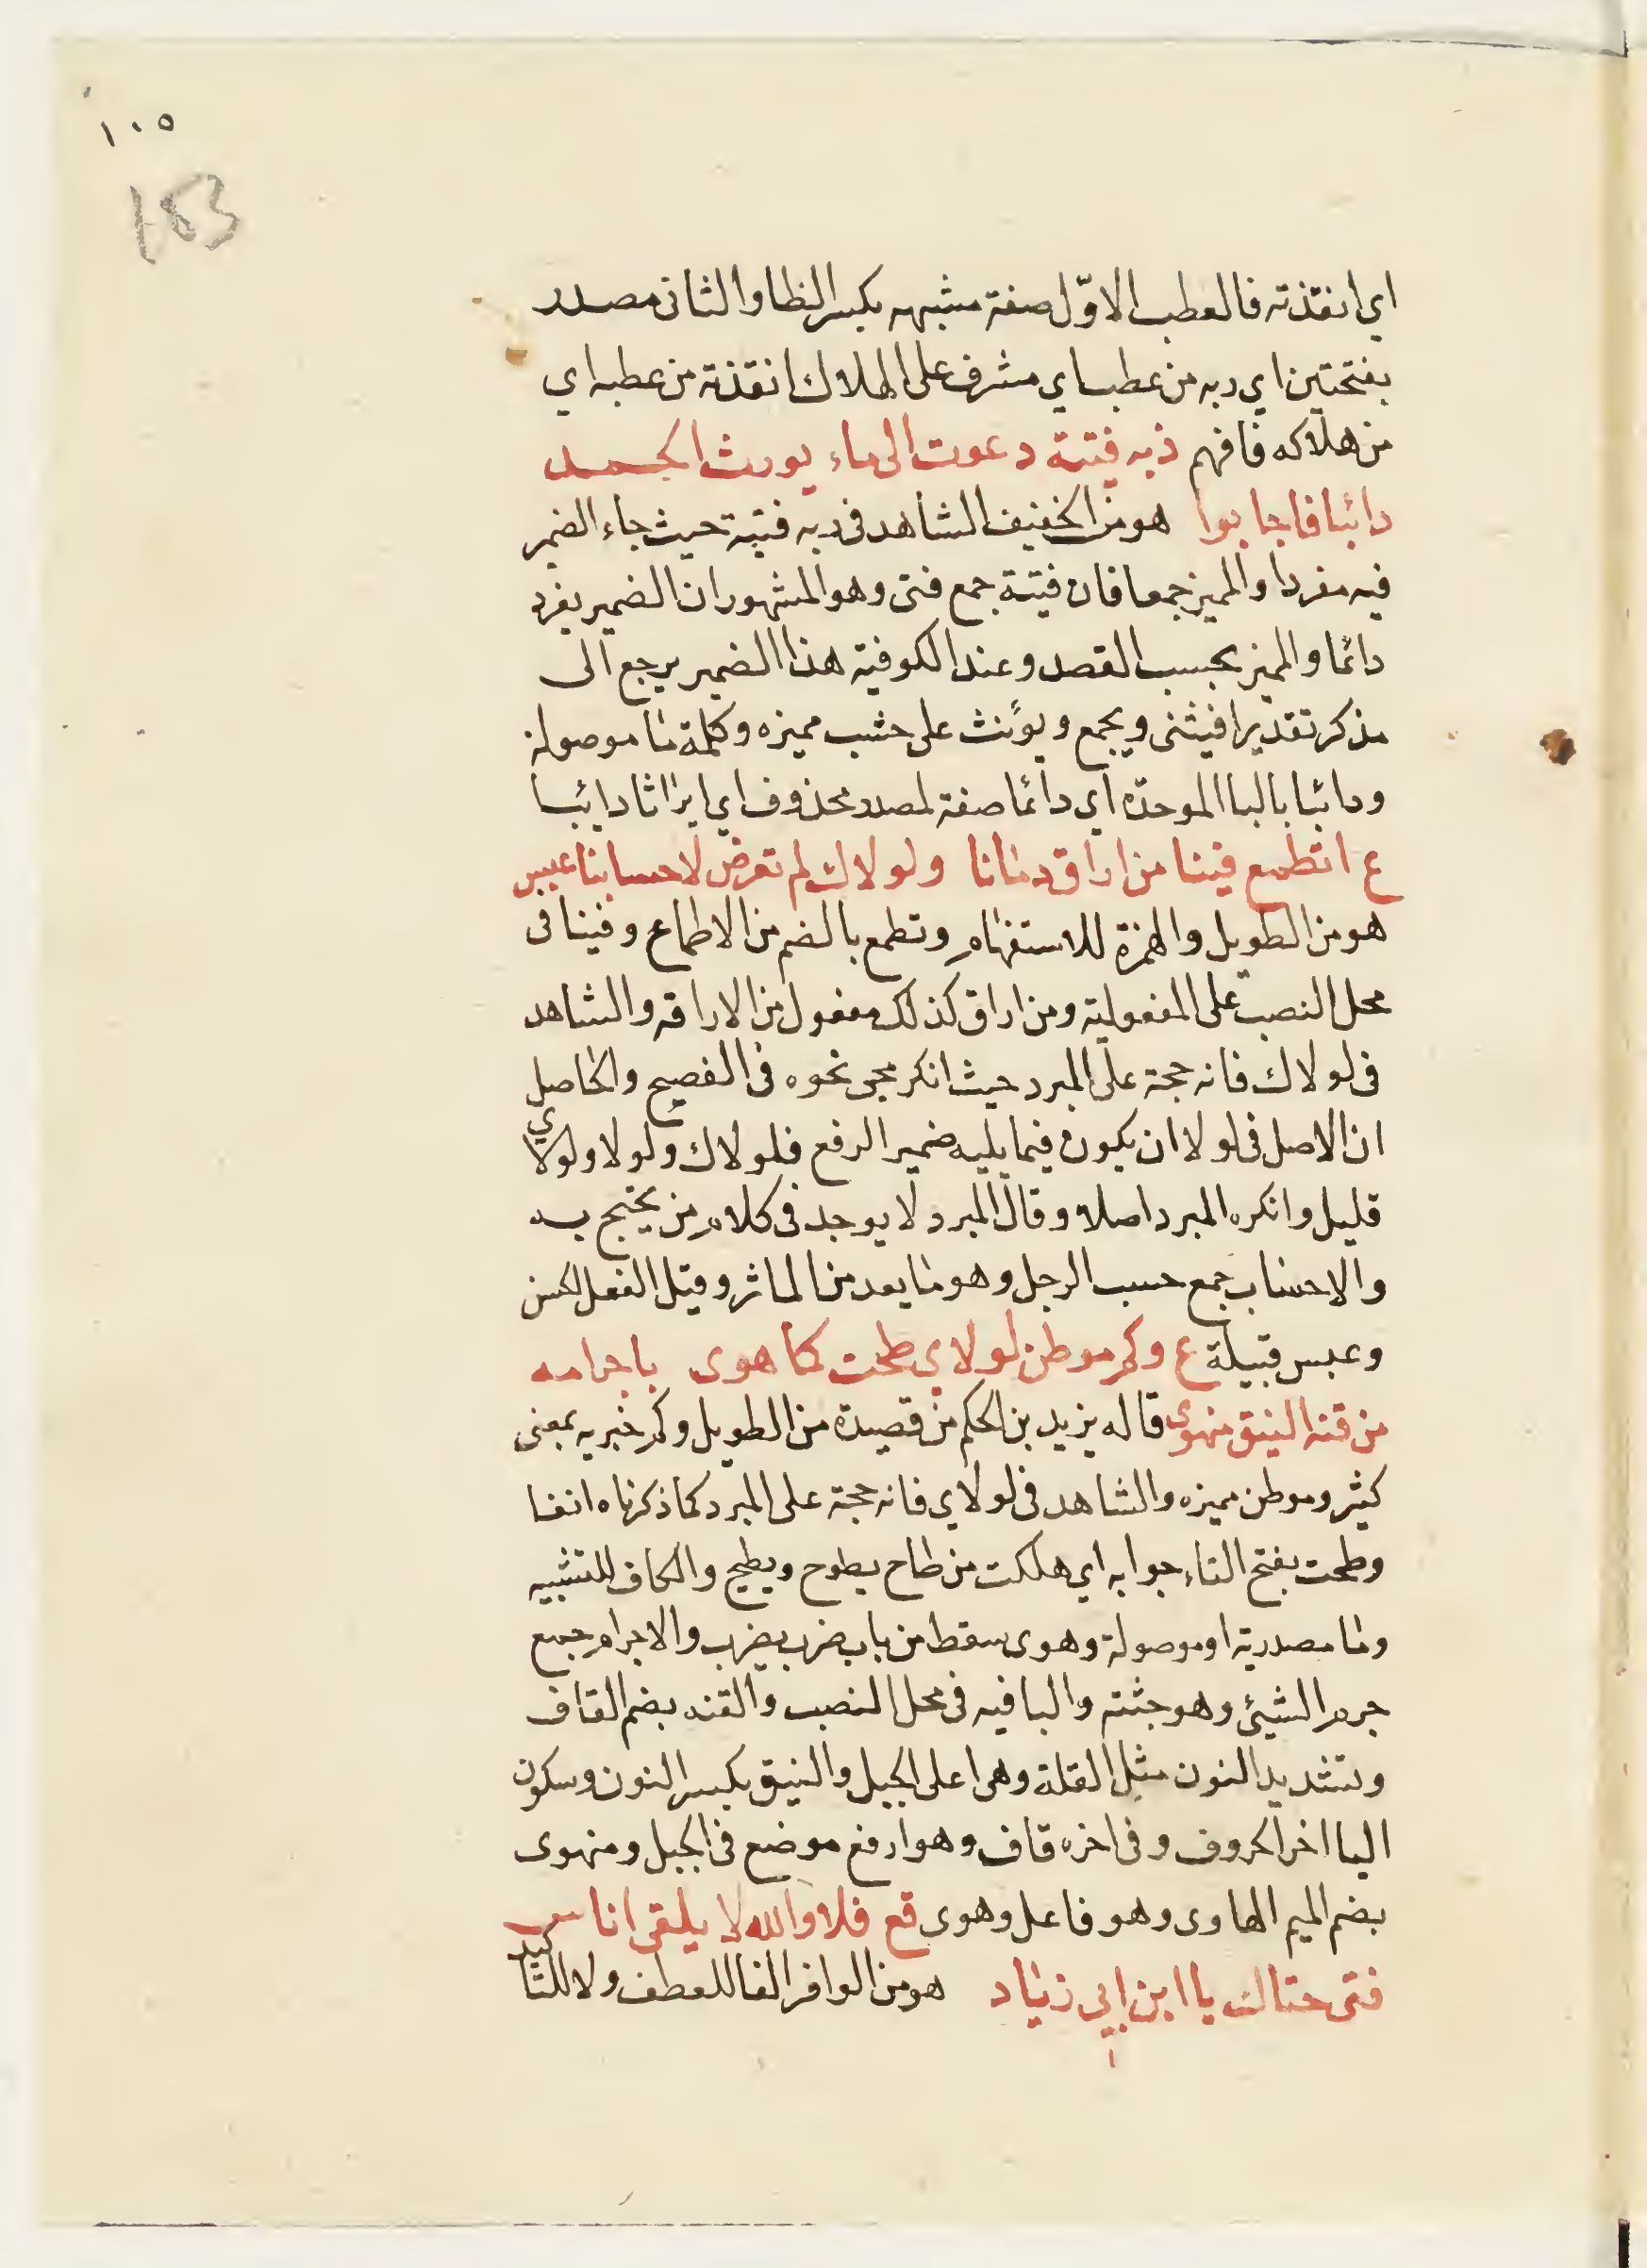 ١٠٥
153
اي انقذته فالعطب الاوّل صفة مشبهه بكسر الطا والثاني مصدر
بفتحتين اي ربه من عطب اي مشرف على الهلاك انقذته من عطبه اي
من هلاكه فافهم ربه فتية دعوت الى ما، يورث الحمد
دائبا فاجابوا هو من الخفيف الشاهد في ربه فتية حيث جاء الضمير
فيه مفردا والمميز جمعا فان فتية جمع فتى وهو المشهور ان الضمير يفرد
دائما والمميز بحسب القصد وعند الكوفية هذا الضمير يرجع الى
مذكر تقديرا فيثنى ويجمع ويؤنث على حسب مميزه وكلمة ما موصولة
ودائبا بالبا الموحدّه اي دائما صفة لمصدر محذوف اي ايراثا دائبا
ع اتطمع فينا من اراق دمانا ولولاك لم تعرض لاحسابنا عبس
هو من الطويل والهمزة للاستفهام وتطمع بالضم من الاطماع وفينا في
محل النصب على المفعولية ومن اراق كذلك مفعول من الاراقه والشاهد
في لولاك فانه حجة على المبرد حيث انكر مجي نحوه في الفصيح والحاصل
ان الاصل في لولا ان يكون فيما يليه ضمير الرفع فلولاك ولولا ولولاي
قليل وانكره المبرد اصلا وقال المبرد لا يوجد في كلام من يحتج به
والاحساب جمع حسب الرجل وهو ما يعد من الماثر وقيل الفعل الحسن
وعبس قبيلة ع وكم موطن لولاي طحت كما هوى باجرامه
من قنه النيق منهوى قاله يزيد بن الحكم من قصيدة من الطويل وكم خبريه بمعنى
كثير وموطن مميزه والشاهد في لولاي فانه حجة على المبرد كما ذكرناه انفا
وطحت بفتح التاء جوابه اي هلكت من طاح يطوح ويطيح والكاف للتشبيه
وما مصدرية او موصولة وهوى سقط من باب ضرب يضرب والاجرام جمع
جرم الشيئ وهو جثته والبا فيه في محل النصب والقنه بضم القاف
وتشديد النون مثل القلة وهي اعلى الجبل والنيق بكسر النون وسكون
اليا اخر الحروف وفي اخره قاف وهو ارفع موضع في الجبل ومنهوى
بضم الميم الهاوى وهو فاعل وهوى قع فلا والله لا يلقى اناس
فتى حتاك يا ابن ابي زياد هو من الوافر الفا للعطف ولا للتاكيد